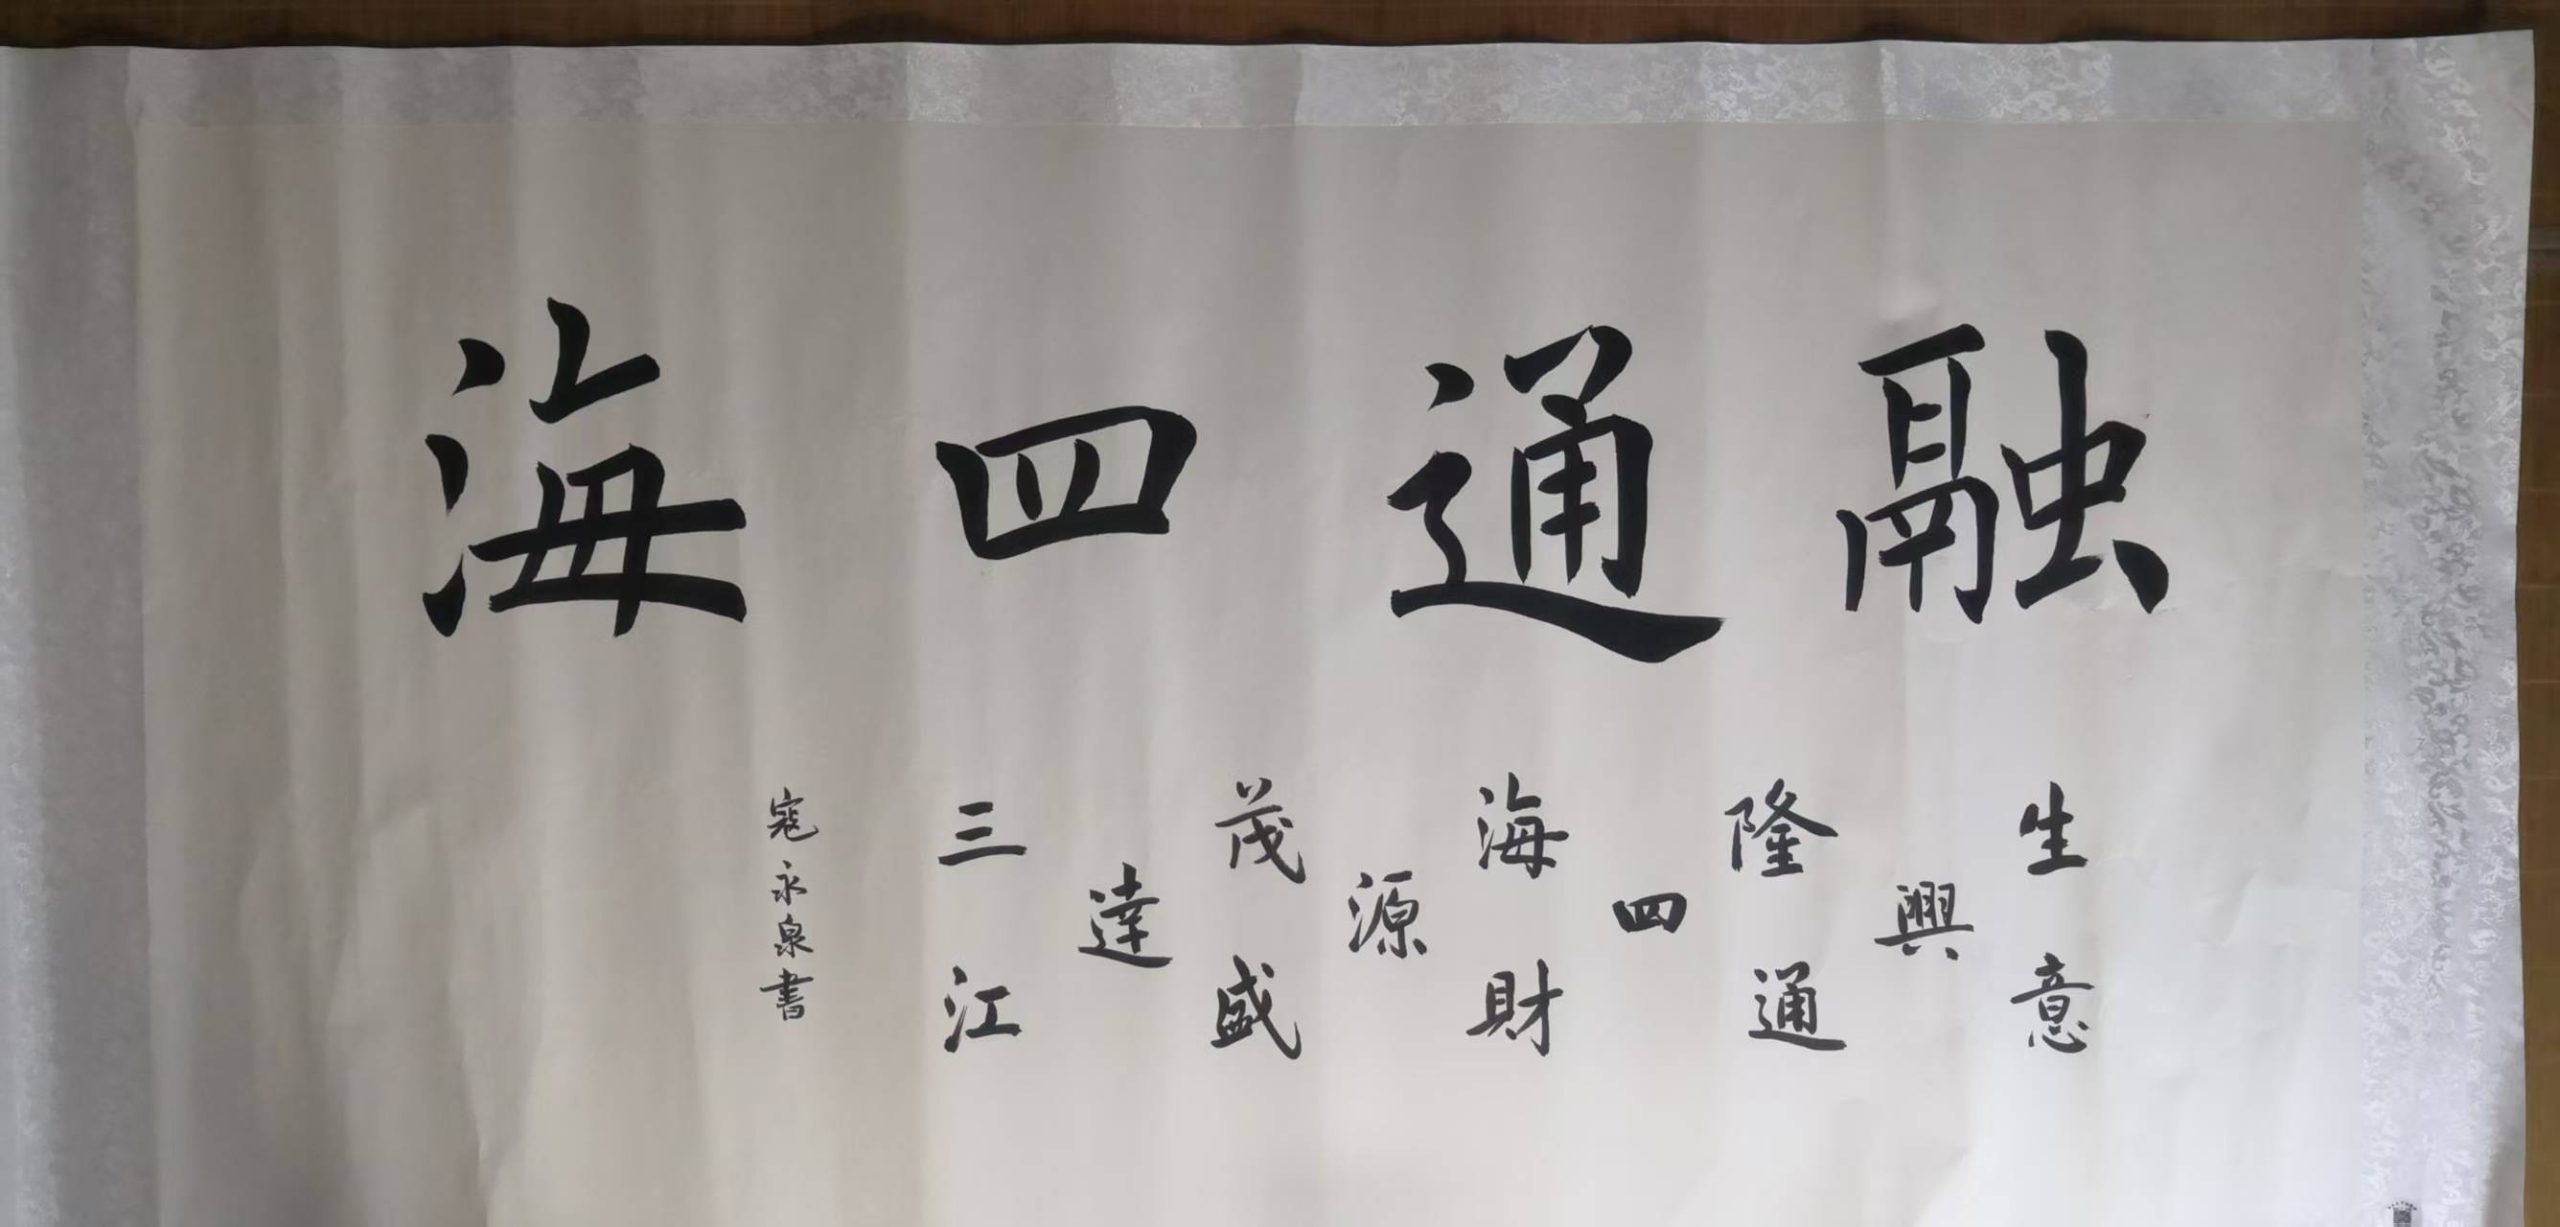 融通四海
生意
興
隆通
四
海財
源
茂盛
達
三江
寇永泉書